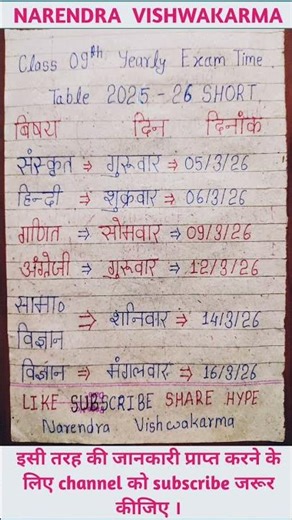 NARENDRA VISHWAKARMA
Class 09th Yearly Exam Time
Table 2025-26 SHORT
बिषय दिन दिनाँक
संस्कृत ⇒ गुरूवार ⇒ 05/3/26
हिन्दी ⇒ शुक्रवार ⇒ 06/3/26
गणित ⇒ सोमवार ⇒ 09/3/26
अंग्रेजी ⇒ गुरूवार ⇒ 12/3/26
सामा०
विज्ञान ⇒ शनिवार ⇒ 14/3/26
विज्ञान ⇒ मंगलवार ⇒ 16/3/26
LIKE SUBSCRIBE SHARE HYPE
Narendra Vishwakarma
इसी तरह की जानकारी प्राप्त करने के
लिए channel को subscribe जरूर
कीजिए ।